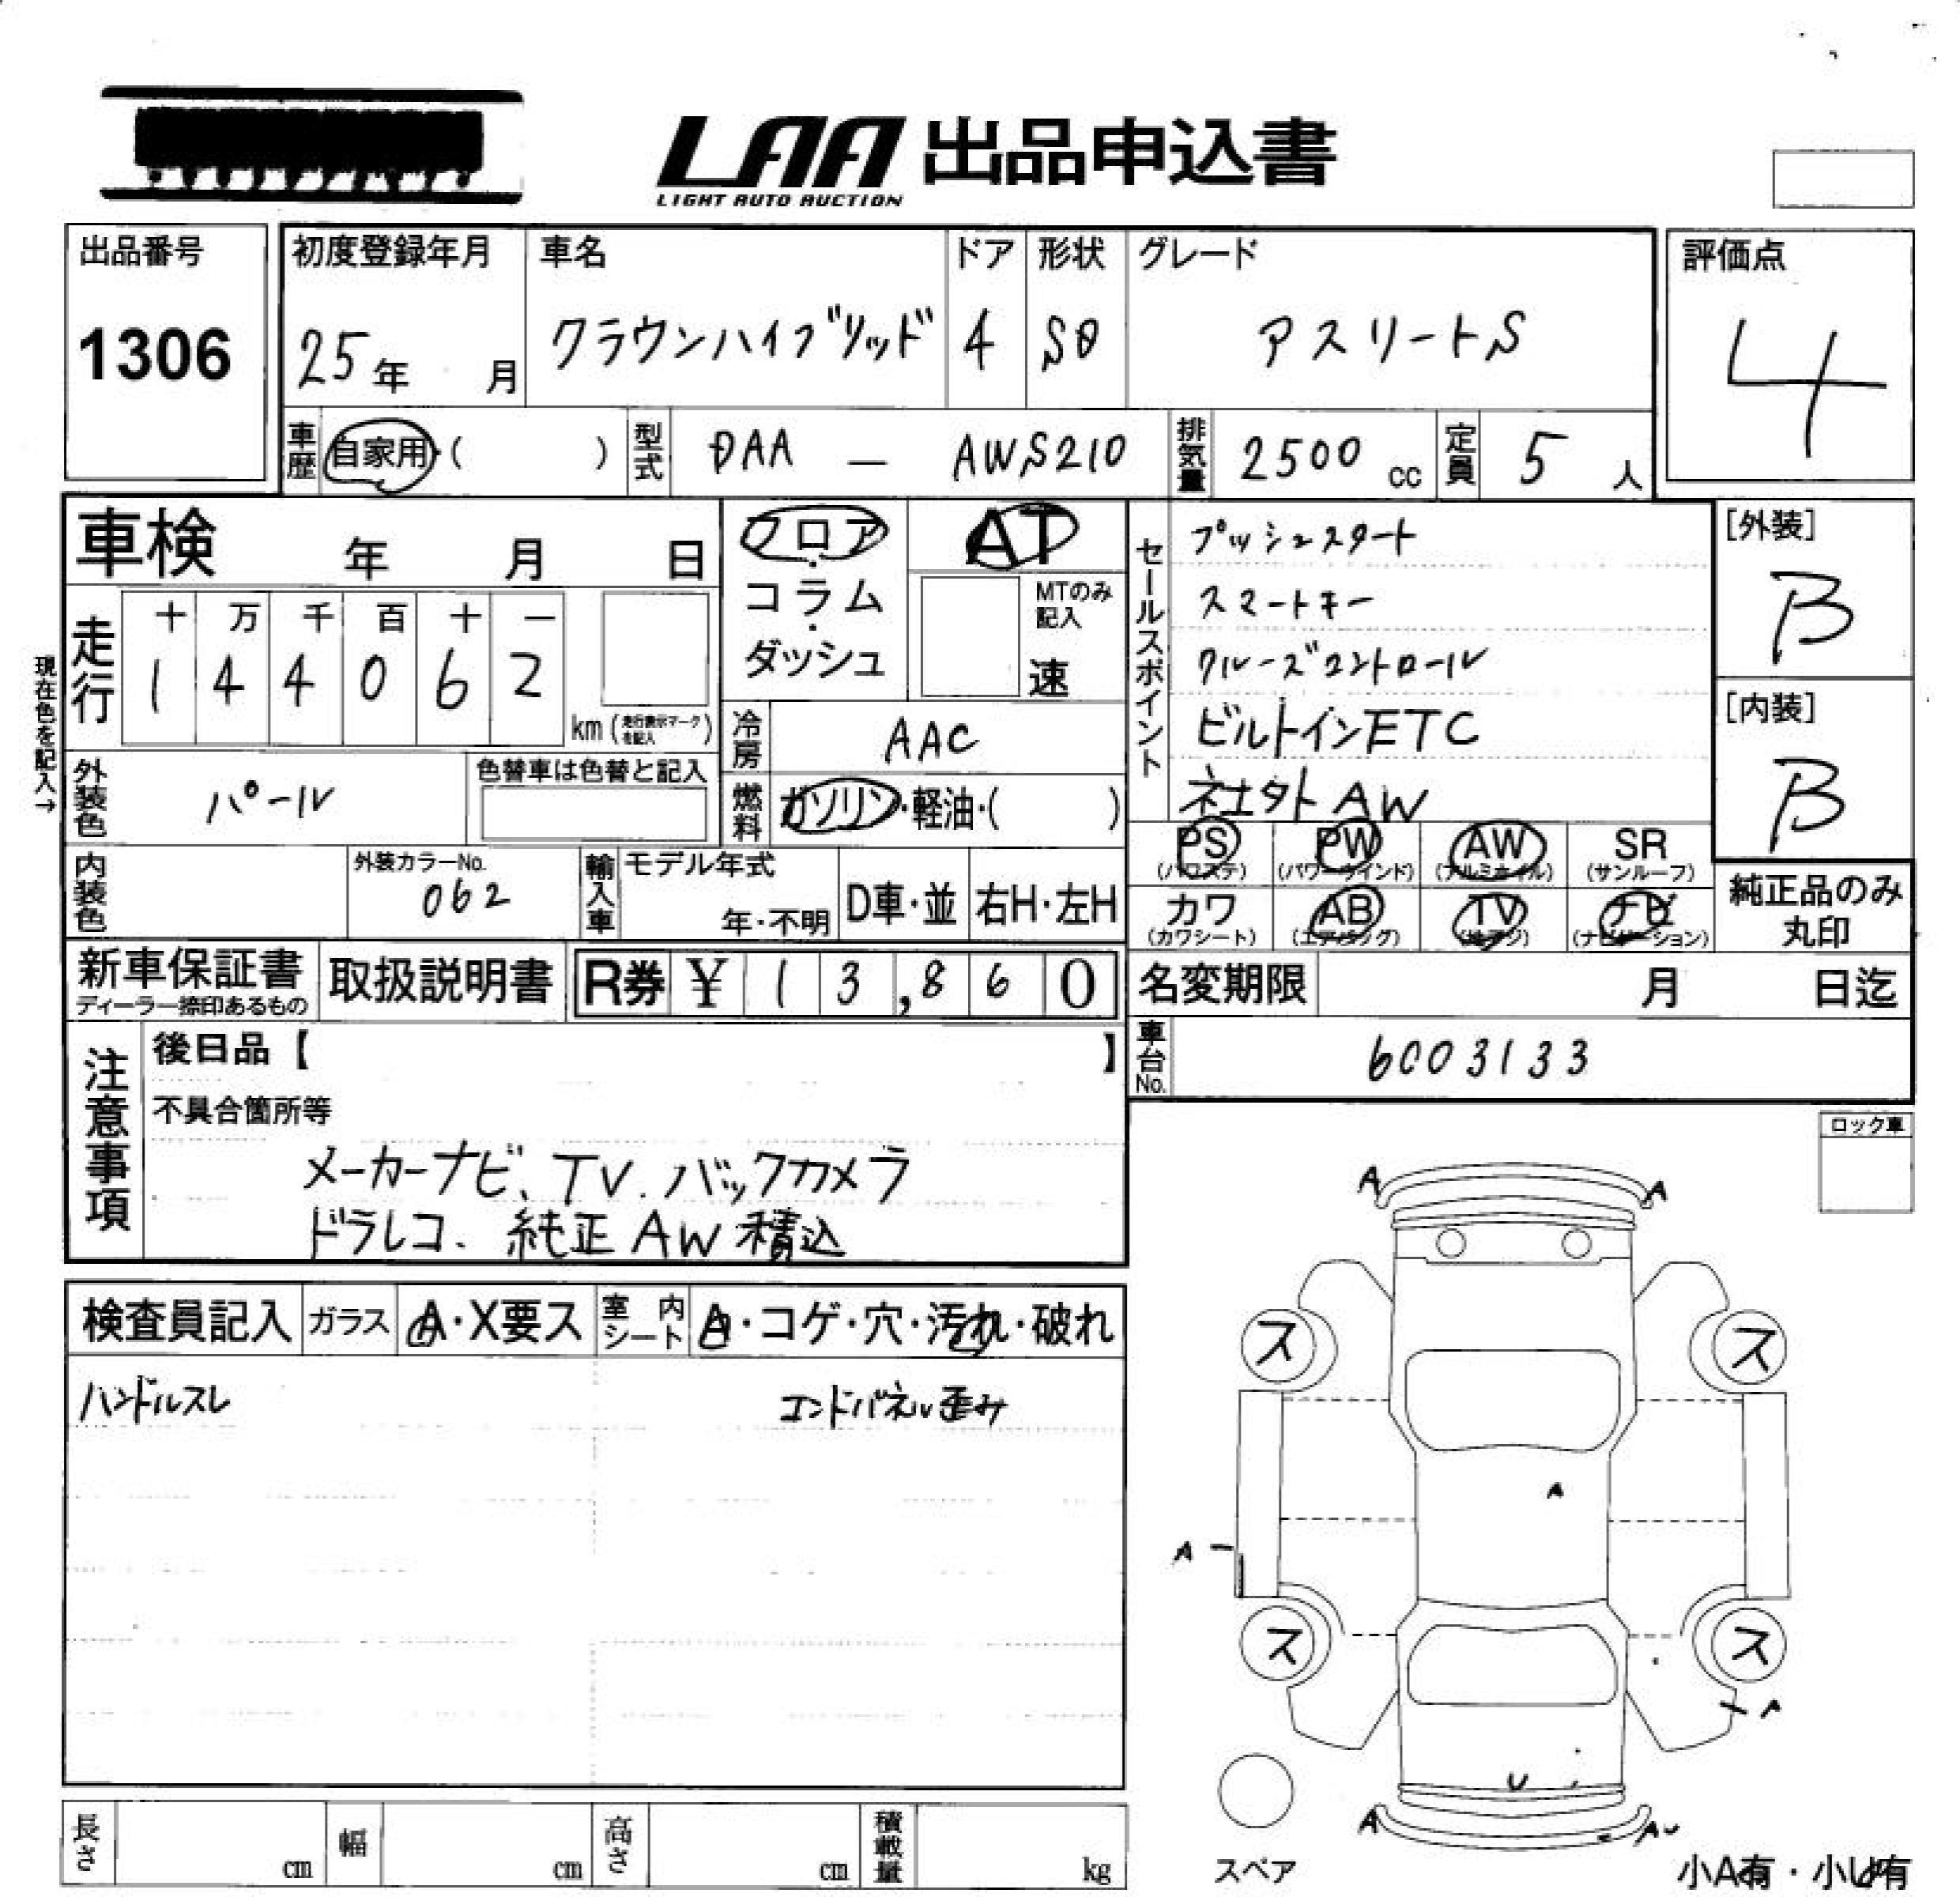 LAA 出品申込書
LIGHT AUTO AUCTION
出品番号
1306
初度登録年月
25年 月
車名
クラウンハイブリッド
ドア
4
形状
SD
グレード
アスリートS
評価点
4
車歴 自家用・( )
型式 DAA — AWS210
排気量 2500 cc
定員 5 人
車検 年 月 日
フロア・コラム・ダッシュ
AT
MTのみ記入
速
セールスポイント
プッシュスタート
スマートキー
クルーズコントロール
ビルトインETC
AW
[外装]
B
[内装]
B
現在色を記入→
走行
十 万 千 百 十 一
1 4 4 0 6 2
km (走行表示マークを記入)
冷房 AAC
燃料 ガソリン・軽油・( )
外装色 パール
色替車は色替と記入
内装色
外装カラーNo.
062
輸入車
モデル年式
年・不明
D車・並
右H・左H
PS (パワステ)
PW (パワーウインド)
AW (アルミホイル)
SR (サンルーフ)
カワ (カワシート)
AB (エアバッグ)
TV (地デジ)
ナビ (ナビゲーション)
純正品のみ
丸印
新車保証書
ディーラー捺印あるもの
取扱説明書
R券 ¥ 13,860
名変期限 月 日迄
車台No. 6003133
注意事項
後日品【 】
不具合箇所等
メーカーナビ、TV.バックカメラ
ドラレコ. 純正AW積込
ロック車
検査員記入
ガラス A・X要ス
室内シート A・コゲ・穴・汚れ・破れ
ハンドルスレ
エンドパネル歪み
A A
ス ス
A
A
ス ス
A
U
A AU
スペア
小A有・小U有
長さ cm
幅 cm
高さ cm
積載量 kg